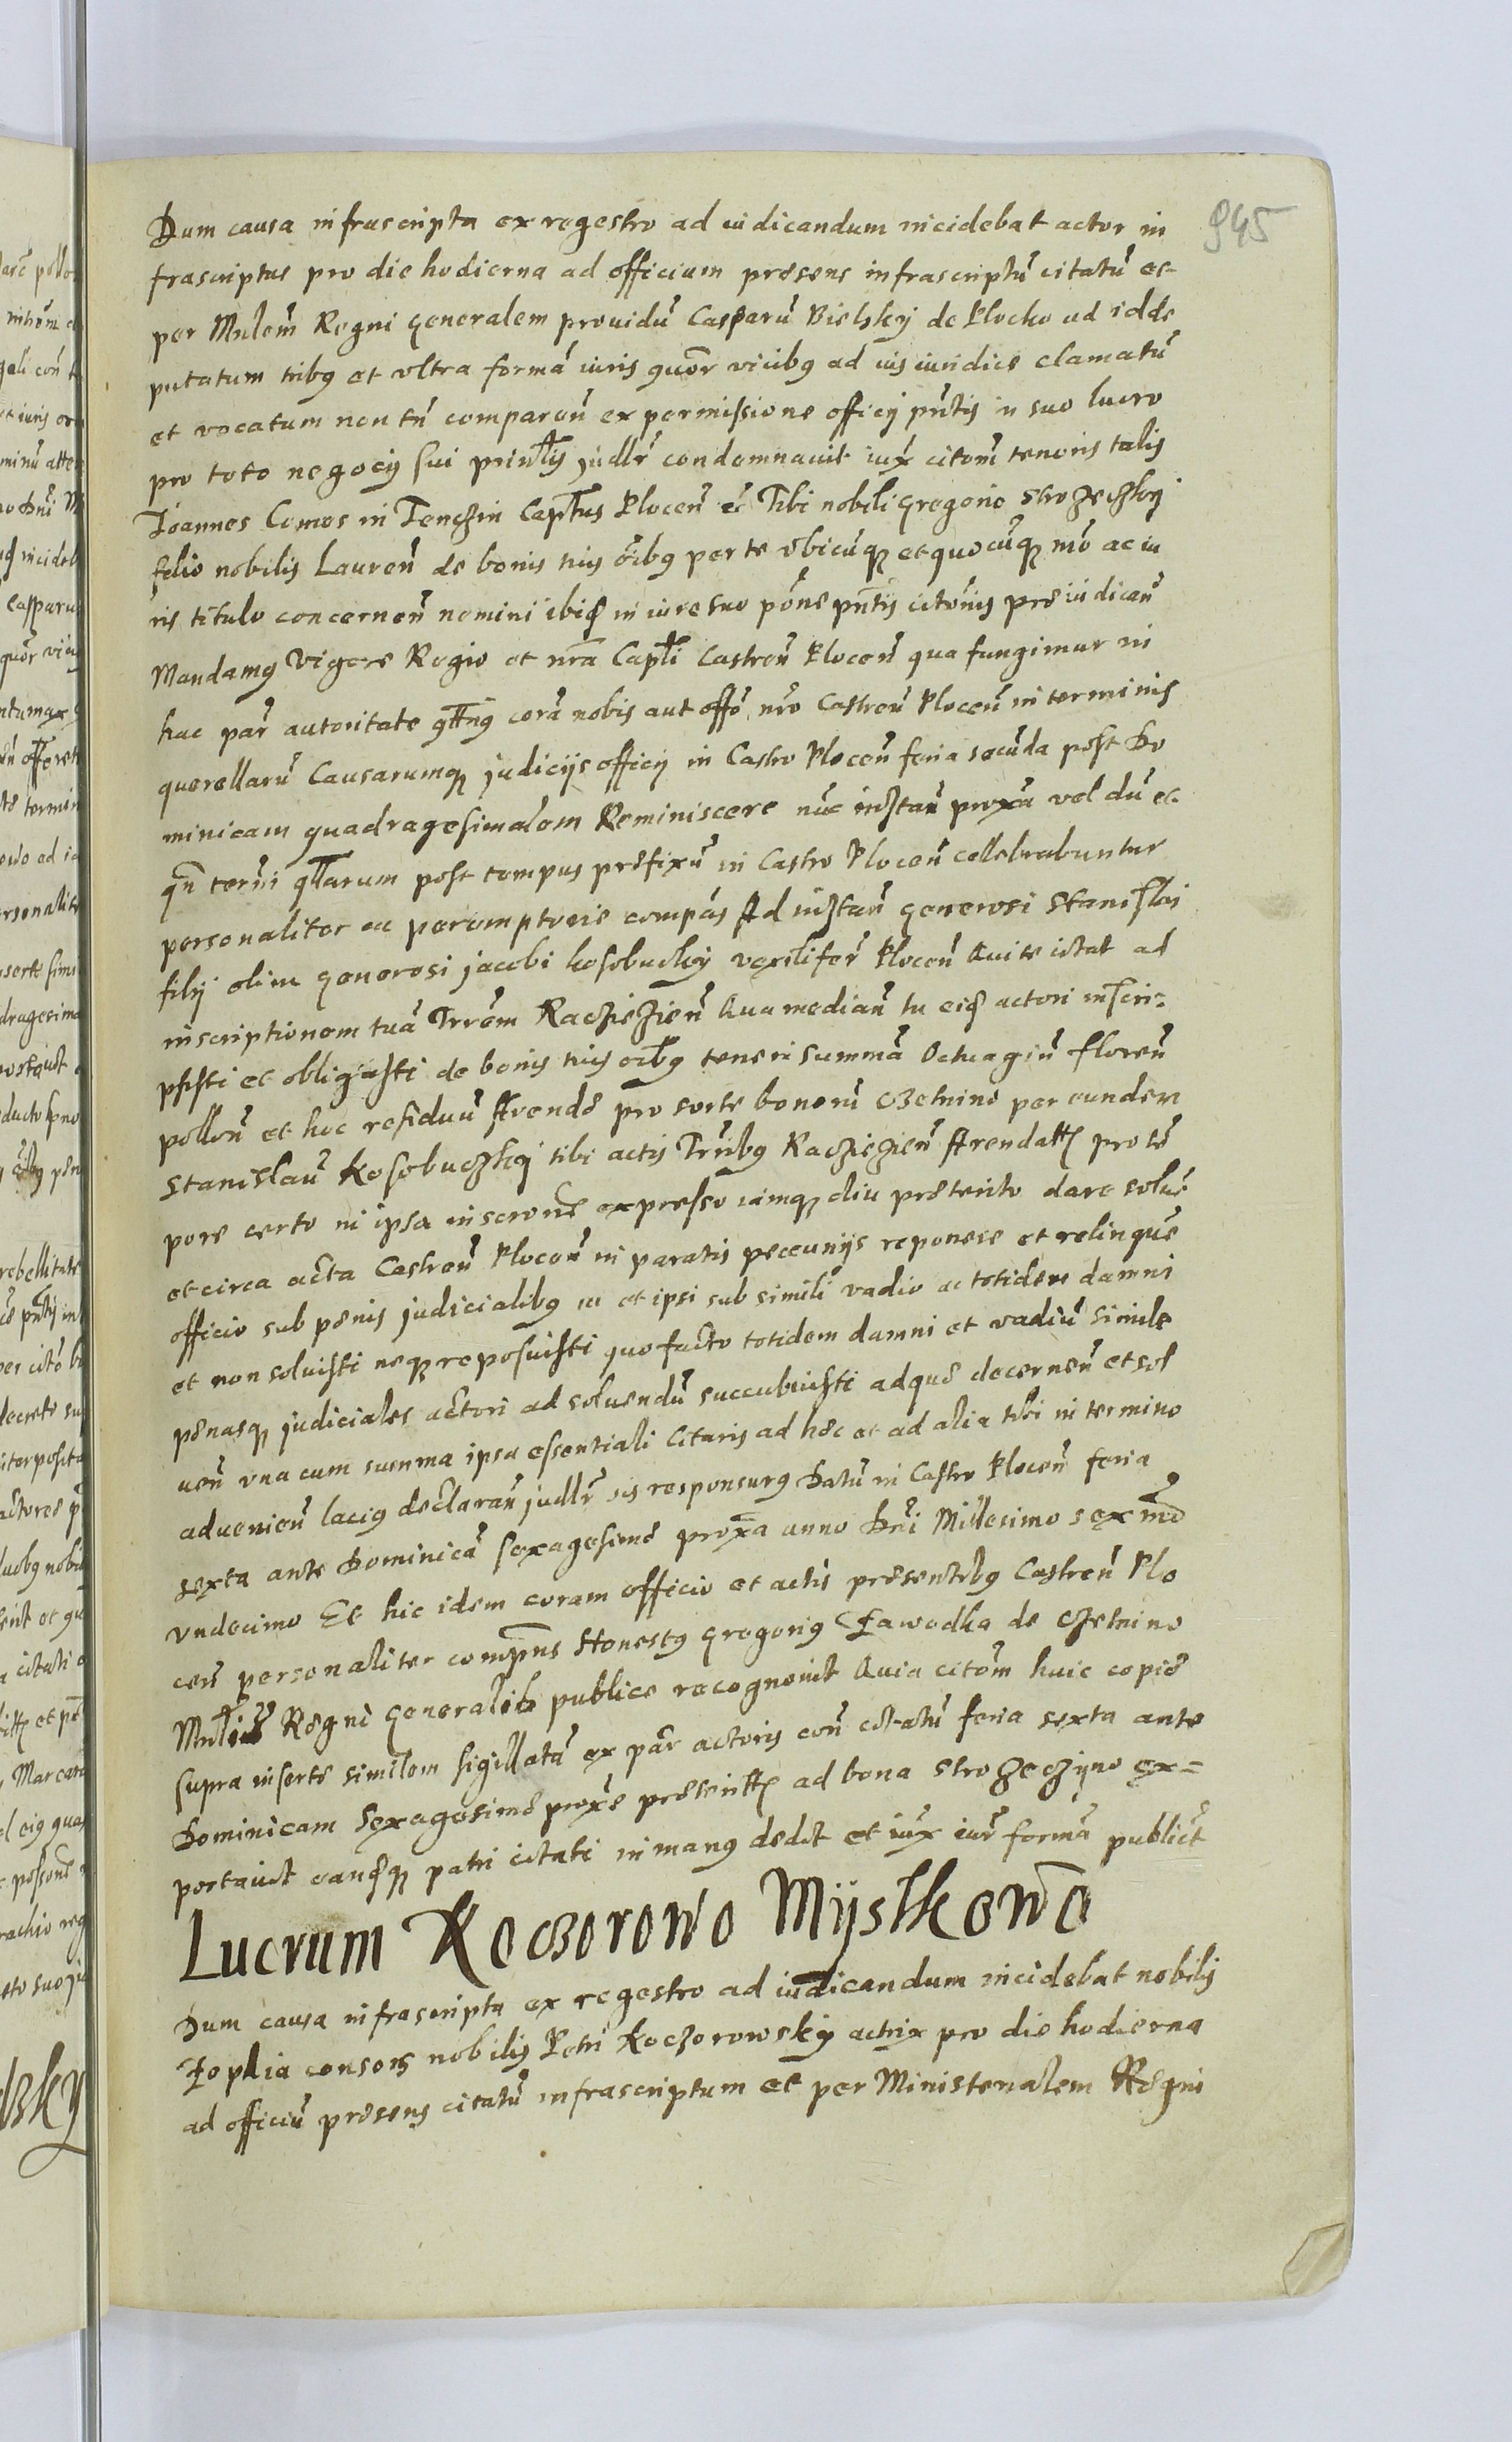 945
Dum causa infrascripta ex regestro ad iudicandum incidebat actor in
frascriptus pro die hodierna ad officium presens infrascriptũ citatũ et
per Mnlem̃ Regni generalem prouidũ Casparũ Bielsky de Plocko ad id de
putatum tribꝰ et vltra formã iuris quor̃ vicibꝰ ad ius iuridice clamatũ
et vocatum non tñ comparen̄ ex permissione officij pñtis in suo lucro
pro toto negocij sui prinlis judlr̃ condemnauit iux̃ citom̃ tenoris talis
Joannes Comes in Tenczin Capt̃us Plocen̄ ec Tibi nobili Gregorio Strozeczky
filio nobilis Lauren̄ de bonis tuis oĩbꝰ per te vbicũqꝫ et quocũqꝫ mõ ac iu
ris titulo concernen̄ nomini ibiq̃ in iure suo põne pñtis citõnis preiudican̄
Mandamꝰ Vigore Regio et nrã Capt̃li Castren̄ Plocen̄ qua fungimur in
hac par̃ autoritate qt̃nꝰ corã nobis aut offõ nrõ Castren̄ Plocen̄ in terminis
querellarũ Causarumqꝫ judicijs officij in Castro Plocen̄ feria secũda post Do
minicam quadragesimalem Reminiscere nũc instan̄ proxã vel dũ et
qñ termi qt̃larum post tempus prefixũ in Castro Plocen̄ cellebrabuntur
personaliter ac peremptorie compãs Ad instan̄ generosi Stanislai
filij olim generosi jacobi kosobuczky vexilifer̃ Plocen̄ Qui te citat ad
inscriptionem tuã Trrẽm Raczięzien̄ Qua median̄ tu eidẽ actori inscri=
psisti et obligasti de bonis tuis oĩbꝰ teneri summã Octuagin̄ floren̄
pollon̄ et hoc residuũ Arende pro sorte bonorũ Ozetnino per eundem
Stanislaũ Kosobuczky tibi actis Trr̃ibꝰ Raczięzien̄ Arendatꝭ pro tẽ
pore certo in ipsa inscrõne expresso iamqꝫ diu preterito dare soluẽ
et circa acta Castren̄ Plocen̄ in paratis peccunijs reponere et relinquẽ
officio sub penis judicialibꝰ ec et ipsi sub simili vadio ac totidem damni
et non soluisti neqꝫ reposuisti quo facto totidem damni et vadiũ simile
penasqꝫ judiciales actori ad soluendũ succubuisti ad que decernen̄ et sol
uen̄ vna cum summa ipsa essentiali Citaris ad hec et ad alia tibi in termino
aduenien̄ lacius declaran̄ judlr̃ sis responsurꝰ Datũ in Castro Plocen̄ feria
sexta ante Dominicã sexagesime proxã anno Dñi Millesimo sexcmõ
vndecimo Et hic idem coram officio et actis presentibꝰ Castren̄ Plo
cen̄ personaliter compñs Honestꝰ gregoriꝰ Zawodka de Ozetnino
Mnlis Regni generalis publice recognouit Quia citõm huic copie
supra inserte similem sigillatã ex par̃ actoris con̄ citatũ feria sexta ante
Dominicam Sexagesime proxẽ preteritꝭ ad bona Strozeczijno ex=
portauit eandẽqꝫ patri citati in manꝰ dedit et iux̃ iur̃ formã publicẽt
Lucrum Koczorowo Mijstkowo
Dum causa infrascripta ex regestro ad iudicandum incidebat nobilis
Zophia consors nobilis Petri Koczorowsky actrix pro die hodierna
ad officiũ presens citatũ infrascriptum et per Ministerialem Regni